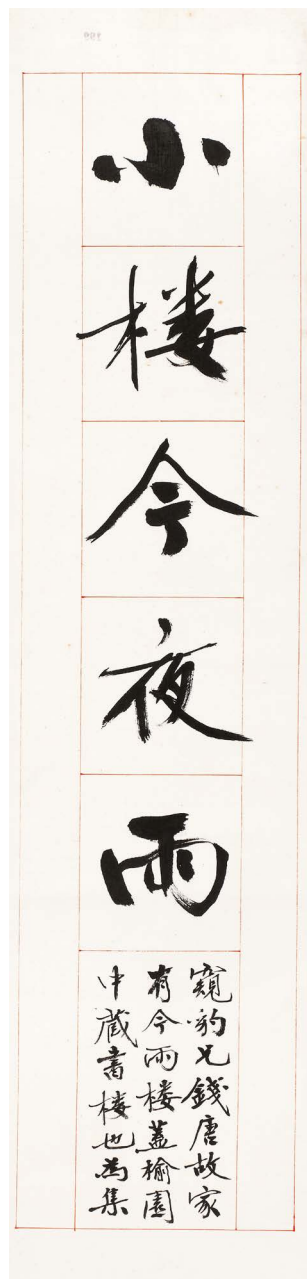 小楼今夜雨
窺豹兄錢唐故家
有今雨楼蓋榆園
中藏書楼也為集